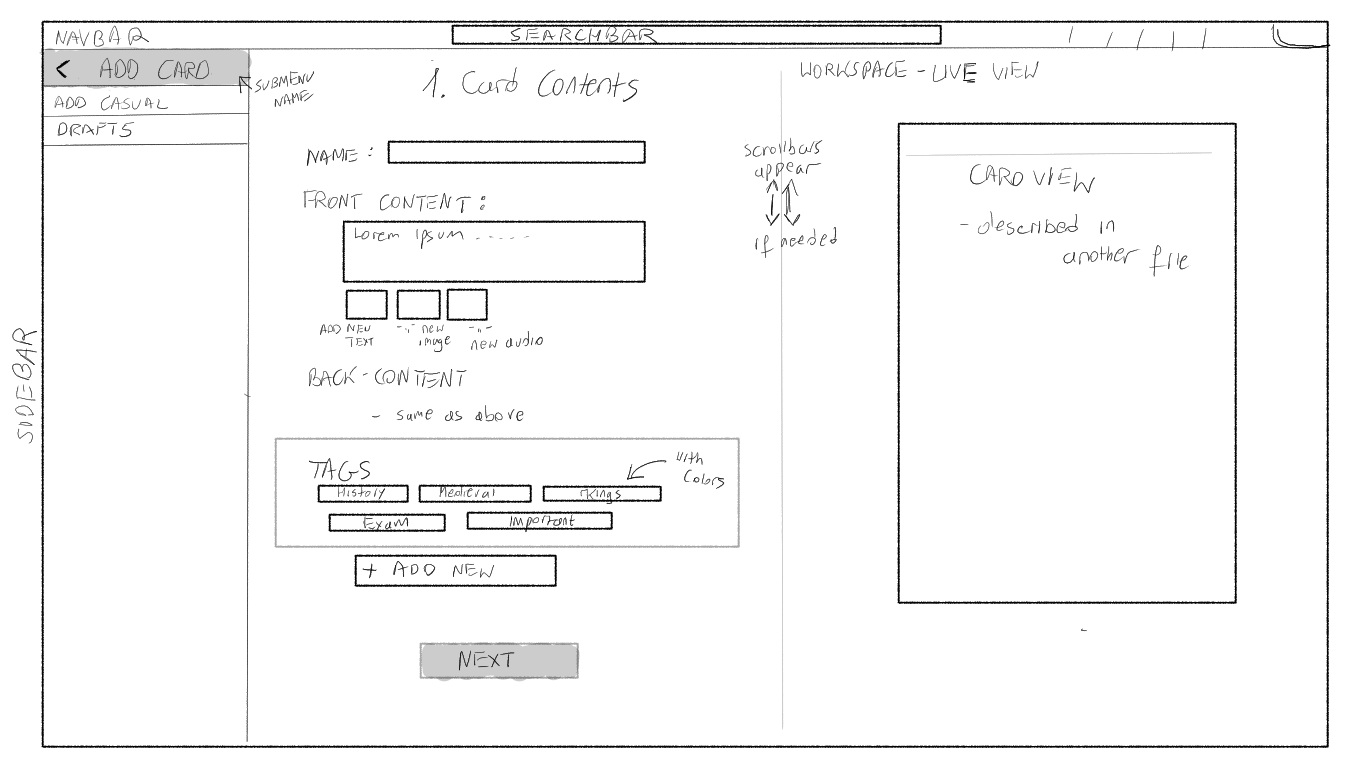 NAVBAR
SEARCHBAR
< ADD CARD
SUBMENU
NAME
ADD CASUAL
DRAFTS
SIDEBAR
1. Card Contents
NAME:
FRONT CONTENT:
Lorem Ipsum -----
ADD NEW
TEXT
-"- new
image
-"-
new audio
BACK-CONTENT
- same as above
TAGS
with
Colors
History
Medieval
Kings
Exam
Important
+ ADD NEW
NEXT
scrollbars
appear
if needed
WORKSPACE - LIVE VIEW
CARD VIEW
- described in
another file